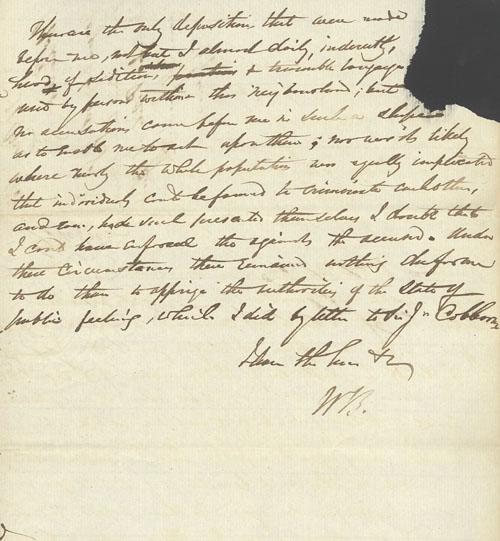 These are the only depositions that were made
before me, not but I almost daily, indirectly,
heard of seditious & treasonable language
used by persons within this neighbourhood; but
no accusations came before me in such a shape
as to enable me to act upon them; nor was it likely
where nearly the whole population was equally implicated
that individuals could be found to criminate each other,
and even, had such presented themselves I doubt that
I could have enforced the against the accused. Under
these circumstances there remained nothing for me
to do than to apprize the authorities of the state of
public feeling, which I did by letter to Sir Jn Colborne
I have the honr &c
W B.